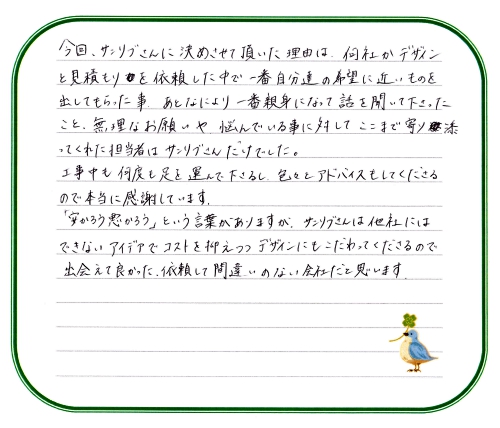 今回、サンリブさんに決めさせて頂いた理由は、何社かデザイン
と見積もりを依頼した中で一番自分達の希望に近いものを
出してもらった事、あとなにより一番親身になって話を聞いて下さった
こと、無理なお願いや、悩んでいる事に対してここまで寄り添
ってくれた担当者はサンリブさんだけでした。
工事中も何度も足を運んで下さるし、色々とアドバイスもしてくださる
ので本当に感謝しています。
「安かろう悪かろう」という言葉がありますが、サンリブさんは他社には
できないアイデアでコストを抑えつつデザインにもこだわってくださるので
出会えて良かった、依頼して間違いのない会社だと思います。